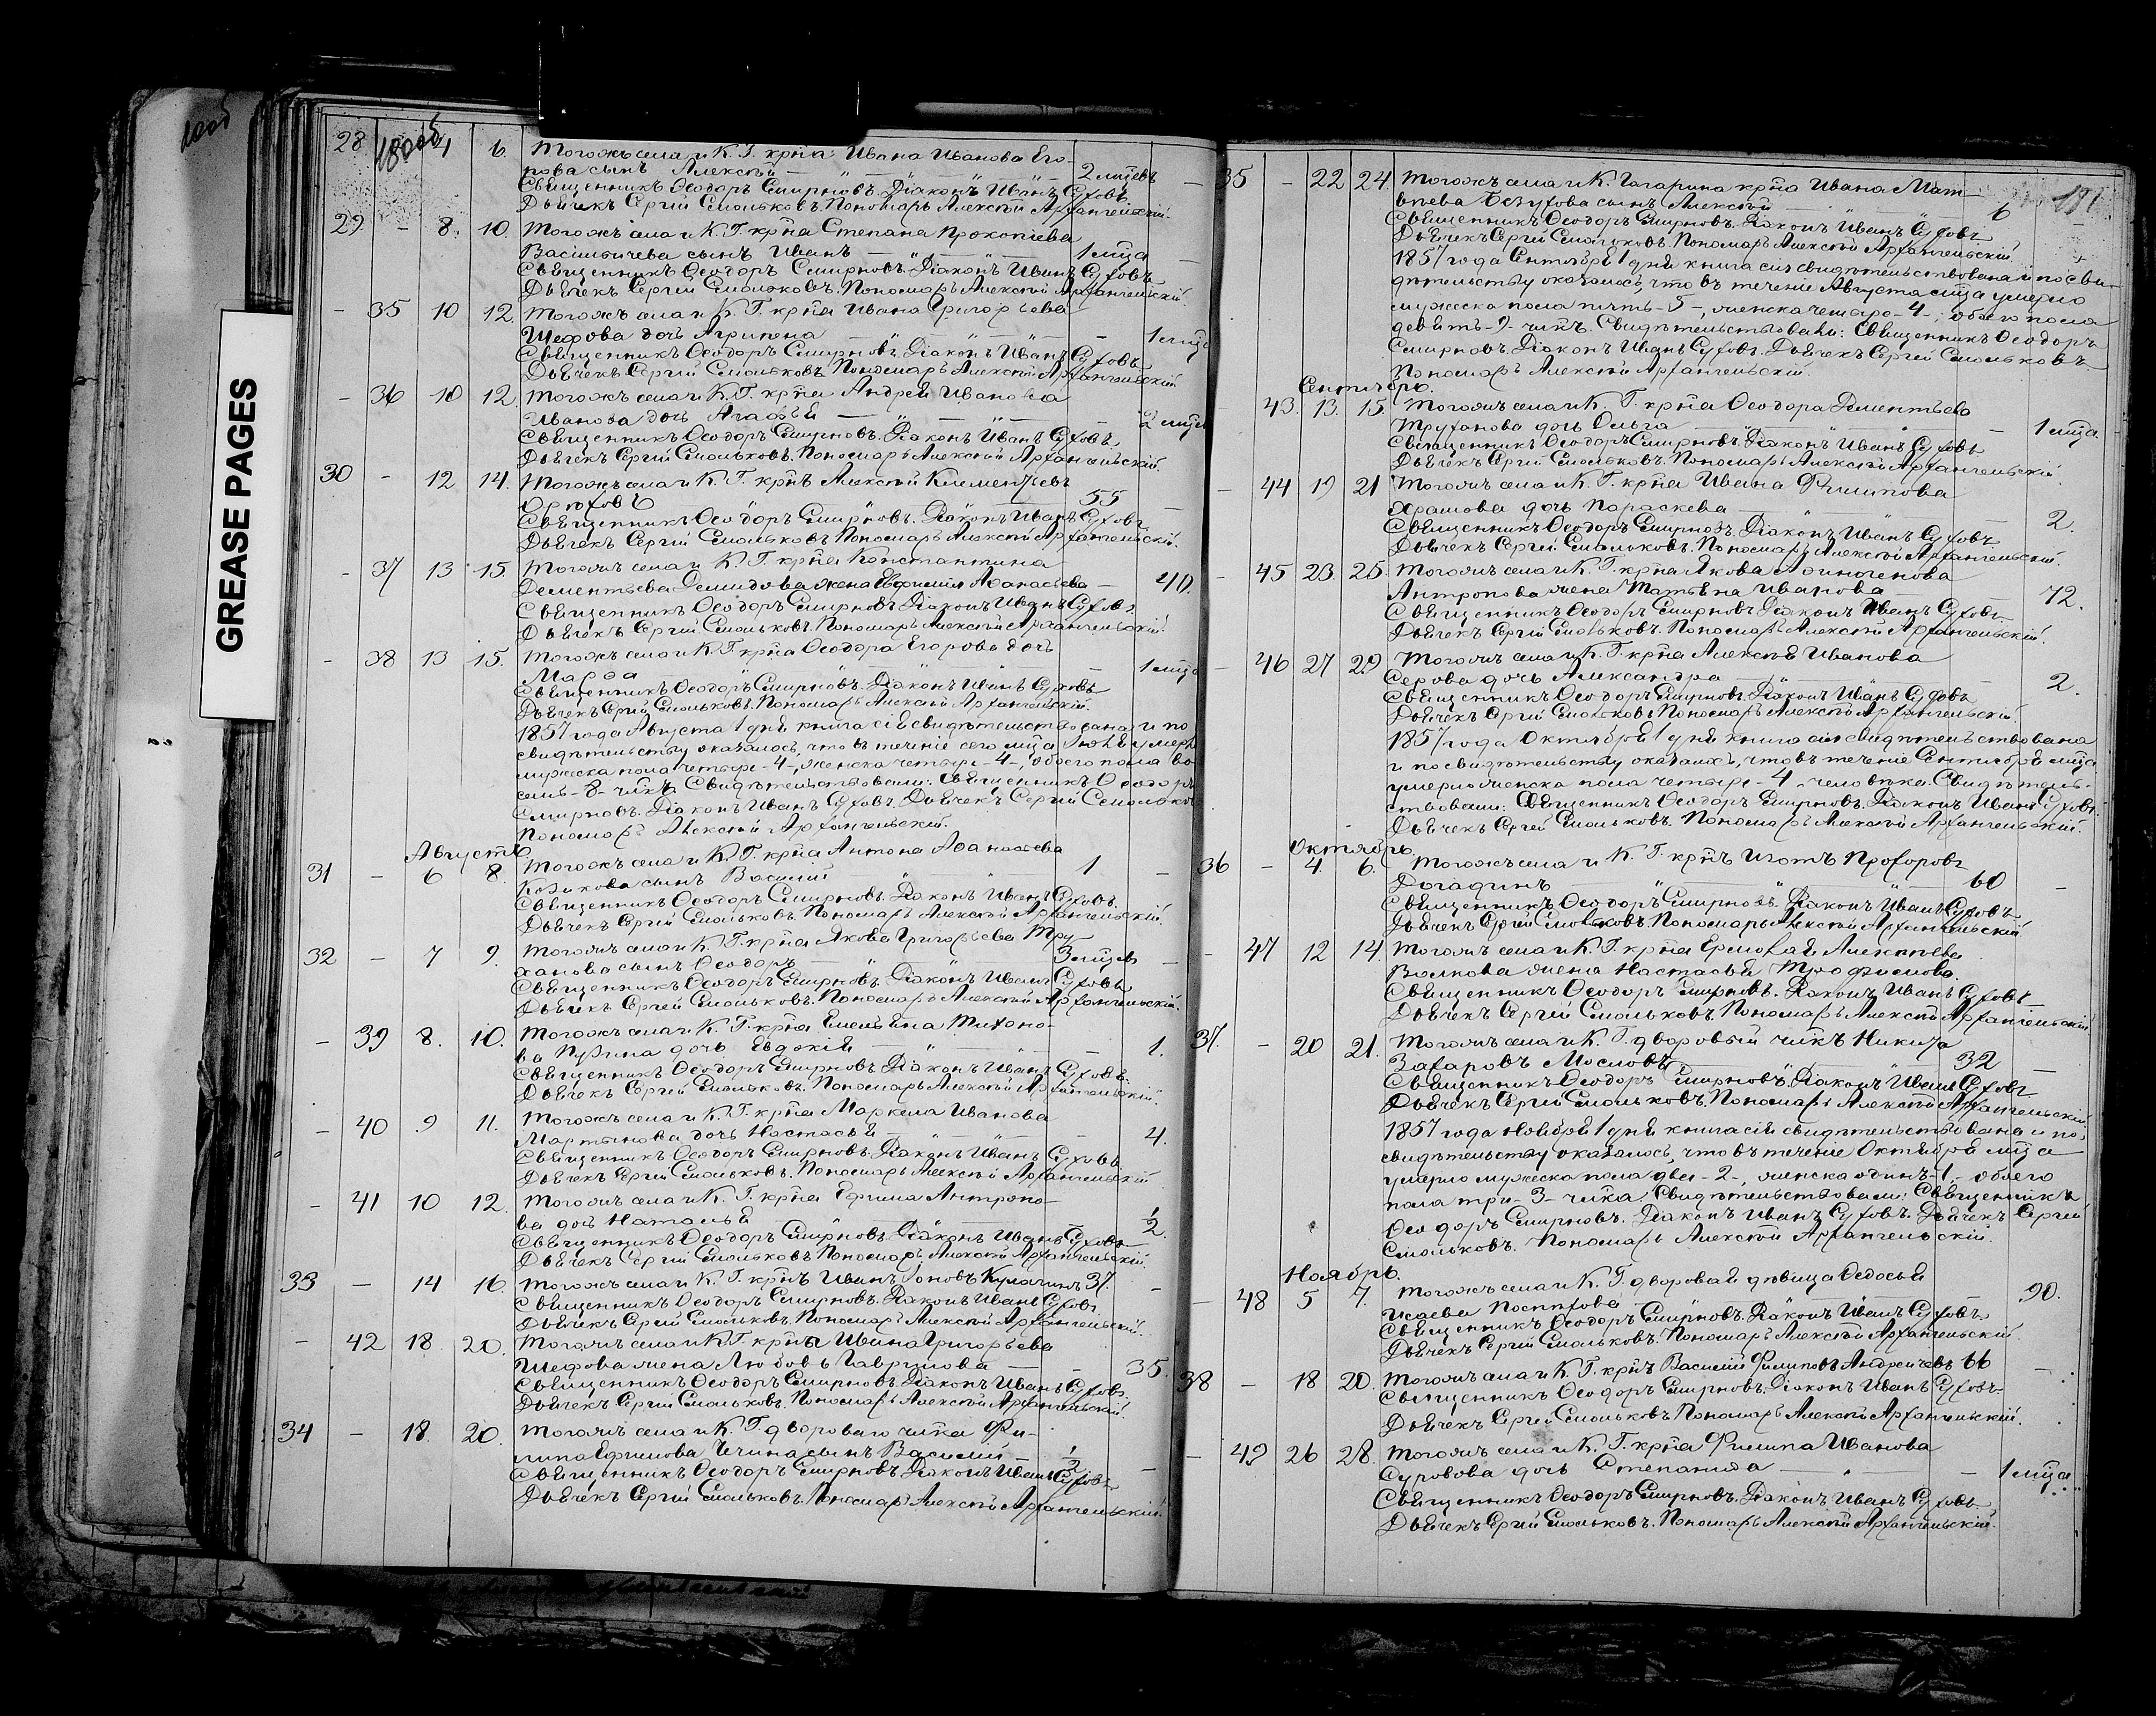 100об
GREASE PAGES
28 180об 6. Тогожъ села и К. Г. крн̃а Ивана Иванова Его-
рова сынъ Алексѣй 2 мц̃евъ
Священникъ Ѳеодоръ Смирновъ. Діаконъ Иванъ Суховъ.
Дьячекъ Сергій Смольковъ. Пономарь Алексѣй Архангельскій.
29 - 8. 10. Тогожъ села и К. Г. крн̃а Степана Прокопіева
Василичева сынъ Иванъ 1 мц̃а
Священникъ Ѳеодоръ Смирновъ. Діаконъ Иванъ Суховъ
Дьячекъ Сергій Смольковъ. Пономарь Алексѣй Архангельскій.
- 35 10 12. Тогожъ села и К. Г. крн̃а Ивана Григорьева
Шефова дочь Агрипена - 1 мц̃а
Священникъ Ѳеодоръ Смирновъ. Діаконъ Иванъ Суховъ
Дьячекъ Сергій Смольковъ. Пономарь Алексѣй Архангельскій
- 36 10 12. Тогожъ села и К. Г. крн̃а Андрея Иванова
Иванова дочь Агафья 2 мц̃евъ
Священникъ Ѳеодоръ Смирновъ. Діаконъ Иванъ Суховъ
Дьячекъ Сергій Смольковъ. Пономарь Алексѣй Архангельскій.
30 - 12 14. Тогожъ села и К. Г. крн̃ъ Алексѣй Клементьевъ
Орѣховъ 55
Священникъ Ѳеодоръ Смирновъ. Діаконъ Иванъ Суховъ
Дьячекъ Сергій Смольковъ. Пономарь Алексѣй Архангельскій.
- 37 13 15. Тогожъ села и К. Г. крн̃а Константина
Дементьева Демидова жена Евфимія Аѳанасьева - 40.
Священникъ Ѳеодоръ Смирновъ. Діаконъ Иванъ Суховъ.
Дьячекъ Сергій Смольковъ. Пономарь Алексѣй Архангельскій.
- 38 13 15. Тогожъ села и К. Г. крн̃а Ѳеодора Егорова дочь
Марѳа - 1 мц̃а
Священникъ Ѳеодоръ Смирновъ. Діаконъ Иванъ Суховъ
Дьячекъ Сергій Смольковъ. Пономарь Алексѣй Архангельскій.
1857 года Августа 1 дня книга сія свидѣтельствована и по
свидѣтельству оказалось, что въ теченіе сего мц̃а Іюля умерло
мужеска пола четыре -4-, женска четыре -4-, обоего пола во
семь -8- чл̃къ Свидѣтельствовали: Священникъ Ѳеодоръ
Смирновъ. Діаконъ Иванъ Суховъ. Дьячекъ Сергій Смольковъ
Пономарь Алексѣй Архангельскій.
Августъ
31 - 6 8. Тогожъ села и К. Г. крн̃а Антона Аѳанасьева
Козикова сынъ Василій 1 -
Священникъ Ѳеодоръ Смирновъ. Діаконъ Иванъ Суховъ.
Дьячекъ Сергій Смольковъ. Пономарь Алексѣй Архангельскій.
32 - 7 9. Тогожъ села и К. Г. крн̃а Якова Григорьева Тру
ханова сынъ Ѳеодоръ 3 мц̃евъ -
Священникъ Ѳеодоръ Смирновъ. Діаконъ Иванъ Суховъ
Дьячекъ Сергій Смольковъ. Пономарь Алексѣй Архангельскій.
- 39 8. 10. Тогожъ села и К. Г. крн̃а Емельяна Тихоно-
ва дочь Евдокія - 1.
Священникъ Ѳеодоръ Смирновъ. Діаконъ Иванъ Суховъ.
Дьячекъ Сергій Смольковъ. Пономарь Алексѣй Архангельскій.
- 40 9 11. Тогожъ села и К. Г. крн̃а Маркела Иванова
Мартынова дочь Настасья - 4.
Священникъ Ѳеодоръ Смирновъ. Діаконъ Иванъ Суховъ
Дьячекъ Сергій Смольковъ. Пономарь Алексѣй Архангельскій
- 41 10 12. Тогожъ села и К. Г. крн̃а Ефима Антропо-
ва дочь Наталья 1/2.
Священникъ Ѳеодоръ Смирновъ. Діаконъ Иванъ Суховъ
Дьячекъ Сергій Смольковъ. Пономарь Алексѣй Архангельскій.
33 - 14 16. Тогожъ села и К. Г. крн̃ъ Иванъ Іоновъ Кулагинъ 37. -
Священникъ Ѳеодоръ Смирновъ. Діаконъ Иванъ Суховъ.
Дьячекъ Сергій Смольковъ. Пономарь Алексѣй Архангельскій.
- 42 18 20. Тогожъ села и К. Г. крн̃а Ивана Григорьева
Шефова жена Любовь Гаврилова - 35.
Священникъ Ѳеодоръ Смирновъ. Діаконъ Иванъ Суховъ.
Дьячекъ Сергій Смольковъ. Пономарь Алексѣй Архангельскій.
34 - 18. 20. Тогожъ села и К. Г. двороваго чл̃ка Фи-
липа Ефимова сынъ Василій 1/2 -
Священникъ Ѳеодоръ Смирновъ. Діаконъ Иванъ Суховъ
Дьячекъ Сергій Смольковъ. Пономарь Алексѣй Архангельскій.
35 - 22 24. Тогожъ села и К. Гагарина крн̃а Ивана Мат-
вѣева Безухова сынъ Алексѣй 6 181
Священникъ Ѳеодоръ Смирновъ. Діаконъ Иванъ Суховъ
Дьячекъ Сергій Смольковъ. Пономарь Алексѣй Архангельскій.
1857 года Сентября 1 дня книга сія свидѣтельствована и по сви-
дѣтельству оказалось, что въ теченіе Августа мц̃а умерло
мужеска пола пять -5-, женска четыре -4-, обоего пола
девять -9- чл̃къ. Свидѣтельствовали: Священникъ Ѳеодоръ
Смирновъ. Діаконъ Иванъ Суховъ. Дьячекъ Сергій Смольковъ.
Пономарь Алексѣй Архангельскій.
Сентябрь.
- 43. 13. 15. Тогожъ села и К. Г. крн̃а Ѳеодора Дементьева
Труханова дочь Ольга - 1 мц̃а.
Священникъ Ѳеодоръ Смирновъ. Діаконъ Иванъ Суховъ
Дьячекъ Сергій Смольковъ. Пономарь Алексѣй Архангельскій.
- 44 19 21 Тогожъ села и К. Г. крн̃а Ивана Филипова
Храмова дочь Параскева - 2.
Священникъ Ѳеодоръ Смирновъ. Діаконъ Иванъ Суховъ
Дьячекъ Сергій Смольковъ. Пономарь Алексѣй Архангельскій.
- 45 23. 25. Тогожъ села и К. Г. крн̃а Якова Аѳиногенова
Антропова жена Татьяна Иванова 72.
Священникъ Ѳеодоръ Смирновъ. Діаконъ Иванъ Суховъ
Дьячекъ Сергій Смольковъ. Пономарь Алексѣй Архангельскій.
- 46 27 29 Тогожъ села и К. Г. крн̃а Алексѣя Иванова
Серова дочь Александра - 2.
Священникъ Ѳеодоръ Смирновъ. Діаконъ Иванъ Суховъ
Дьячекъ Сергій Смольковъ. Пономарь Алексѣй Архангельскій.
1857 года Октября 1 дня книга сія свидѣтельствована
и по свидѣтельству оказалось, что въ теченіе Сентября мц̃а
умерло женска пола четыре -4- человѣка. Свидѣтель-
ствовали: Священникъ Ѳеодоръ Смирновъ. Діаконъ Иванъ Суховъ.
Дьячекъ Сергій Смольковъ. Пономарь Алексѣй Архангельскій.
Октябрь.
36 - 4. 6. Тогожъ села и К. Г. крн̃ъ Изотъ Прохоровъ
Догадинъ 60 -
Священникъ Ѳеодоръ Смирновъ. Діаконъ Иванъ Суховъ
Дьячекъ Сергій Смольковъ. Пономарь Алексѣй Архангельскій
- 47 12 14. Тогожъ села и К. Г. крн̃а Ермолая Алексѣева
Волкова жена Настасья Трофимова.
Священникъ Ѳеодоръ Смирновъ. Діаконъ Иванъ Суховъ
Дьячекъ Сергій Смольковъ. Пономарь Алексѣй Архангельскій
37. - 20 21. Тогожъ села и К. Г. дворовый чл̃къ Никита
Захаровъ Масловъ 32 -
Священникъ Ѳеодоръ Смирновъ. Діаконъ Иванъ Суховъ
Дьячекъ Сергій Смольковъ. Пономарь Алексѣй Архангельскій
1857 года Ноября 1 дня книга сія свидѣтельствована и по
свидѣтельству оказалось, что въ теченіе Октября мц̃а
умерло мужеска пола два -2-, женска одинъ -1-, обоего
пола три -3- чл̃ка. Свидѣтельствовали: Священникъ
Ѳеодоръ Смирновъ. Діаконъ Иванъ Суховъ. Дьячекъ Сергій
Смольковъ. Пономарь Алексѣй Архангельскій.
Ноябрь.
- 48 5 7. Тогожъ села и К. Г. дворовая дѣвица Ѳедосья
Исаева - 90.
Священникъ Ѳеодоръ Смирновъ. Діаконъ Иванъ Суховъ
Дьячекъ Сергій Смольковъ. Пономарь Алексѣй Архангельскій
38 - 18 20. Тогожъ села и К. Г. крн̃ъ Василій Филиповъ Андреичевъ 66 -
Священникъ Ѳеодоръ Смирновъ. Діаконъ Иванъ Суховъ
Дьячекъ Сергій Смольковъ. Пономарь Алексѣй Архангельскій.
- 49 26 28. Тогожъ села и К. Г. крн̃а Филипа Иванова
Суровова дочь Степанида - 1 мц̃а
Священникъ Ѳеодоръ Смирновъ. Діаконъ Иванъ Суховъ
Дьячекъ Сергій Смольковъ. Пономарь Алексѣй Архангельскій.